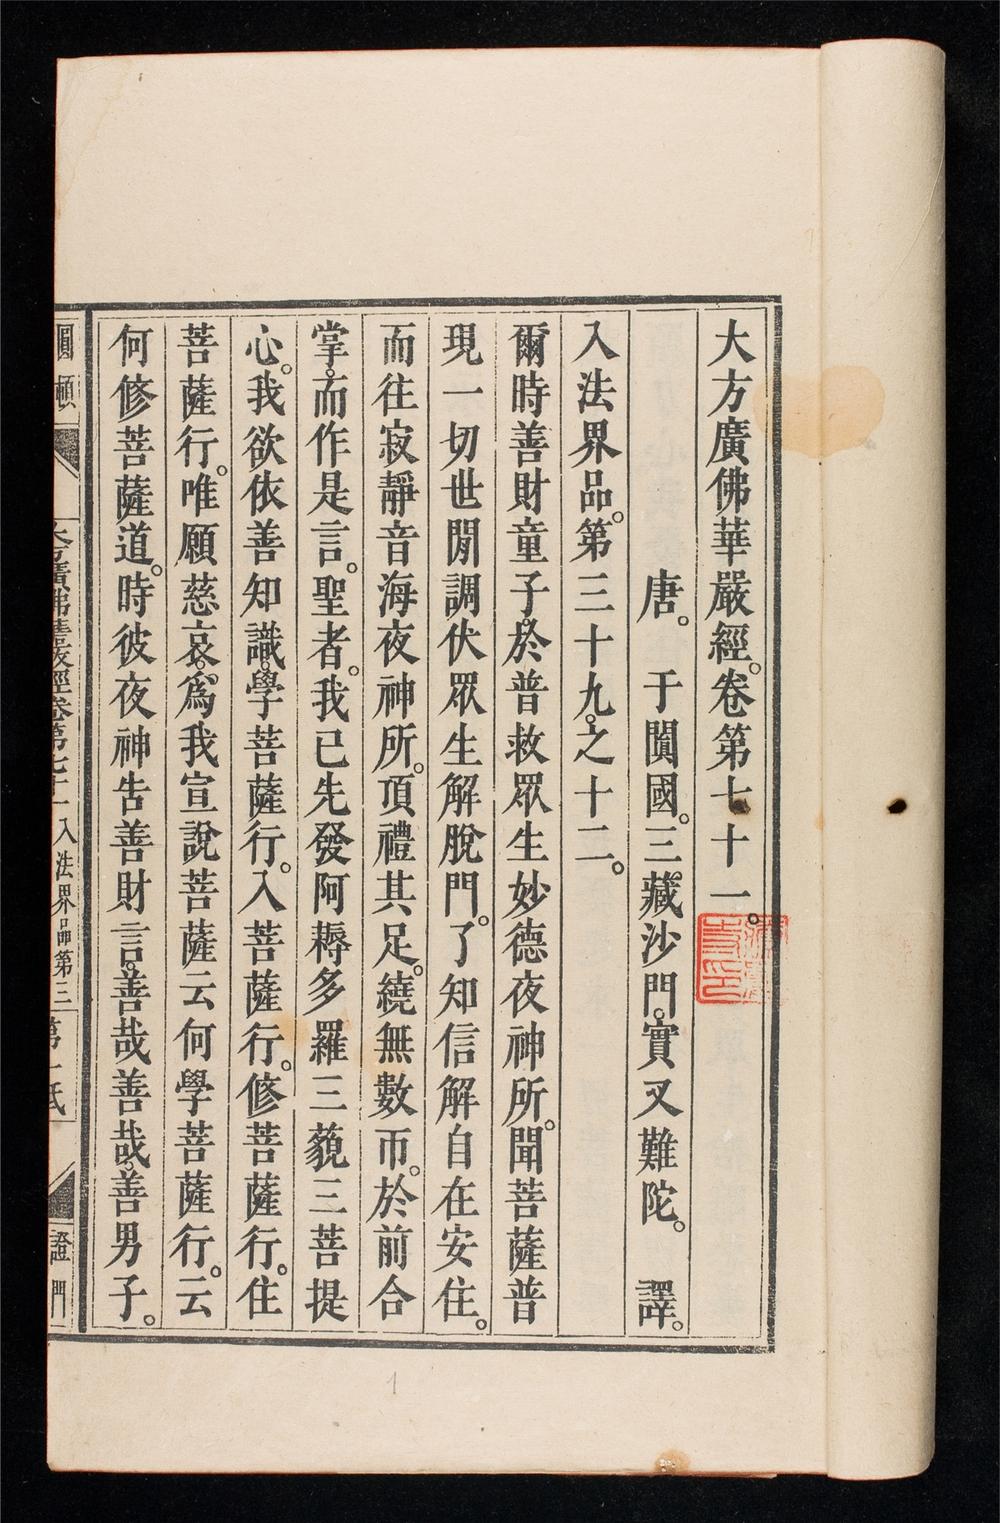 大方廣佛華嚴經。卷第七十一。
唐。于闐國。三藏沙門。實叉難陀。譯。
入法界品。第三十九。之十二。
爾時善財童子。於普救眾生妙德夜神所。聞菩薩普
現一切世閒調伏眾生解脫門。了知信解自在安住。
而往寂靜音海夜神所。頂禮其足。繞無數帀。於前合
掌。而作是言。聖者。我已先發阿耨多羅三藐三菩提
心。我欲依善知識。學菩薩行。入菩薩行。修菩薩行。住
菩薩行。唯願慈哀。為我宣說菩薩云何學菩薩行。云
何修菩薩道。時彼夜神告善財言。善哉善哉。善男子。
圓頓 大方廣佛華嚴經卷第七十一 入法界品第三 第一紙 證門
1